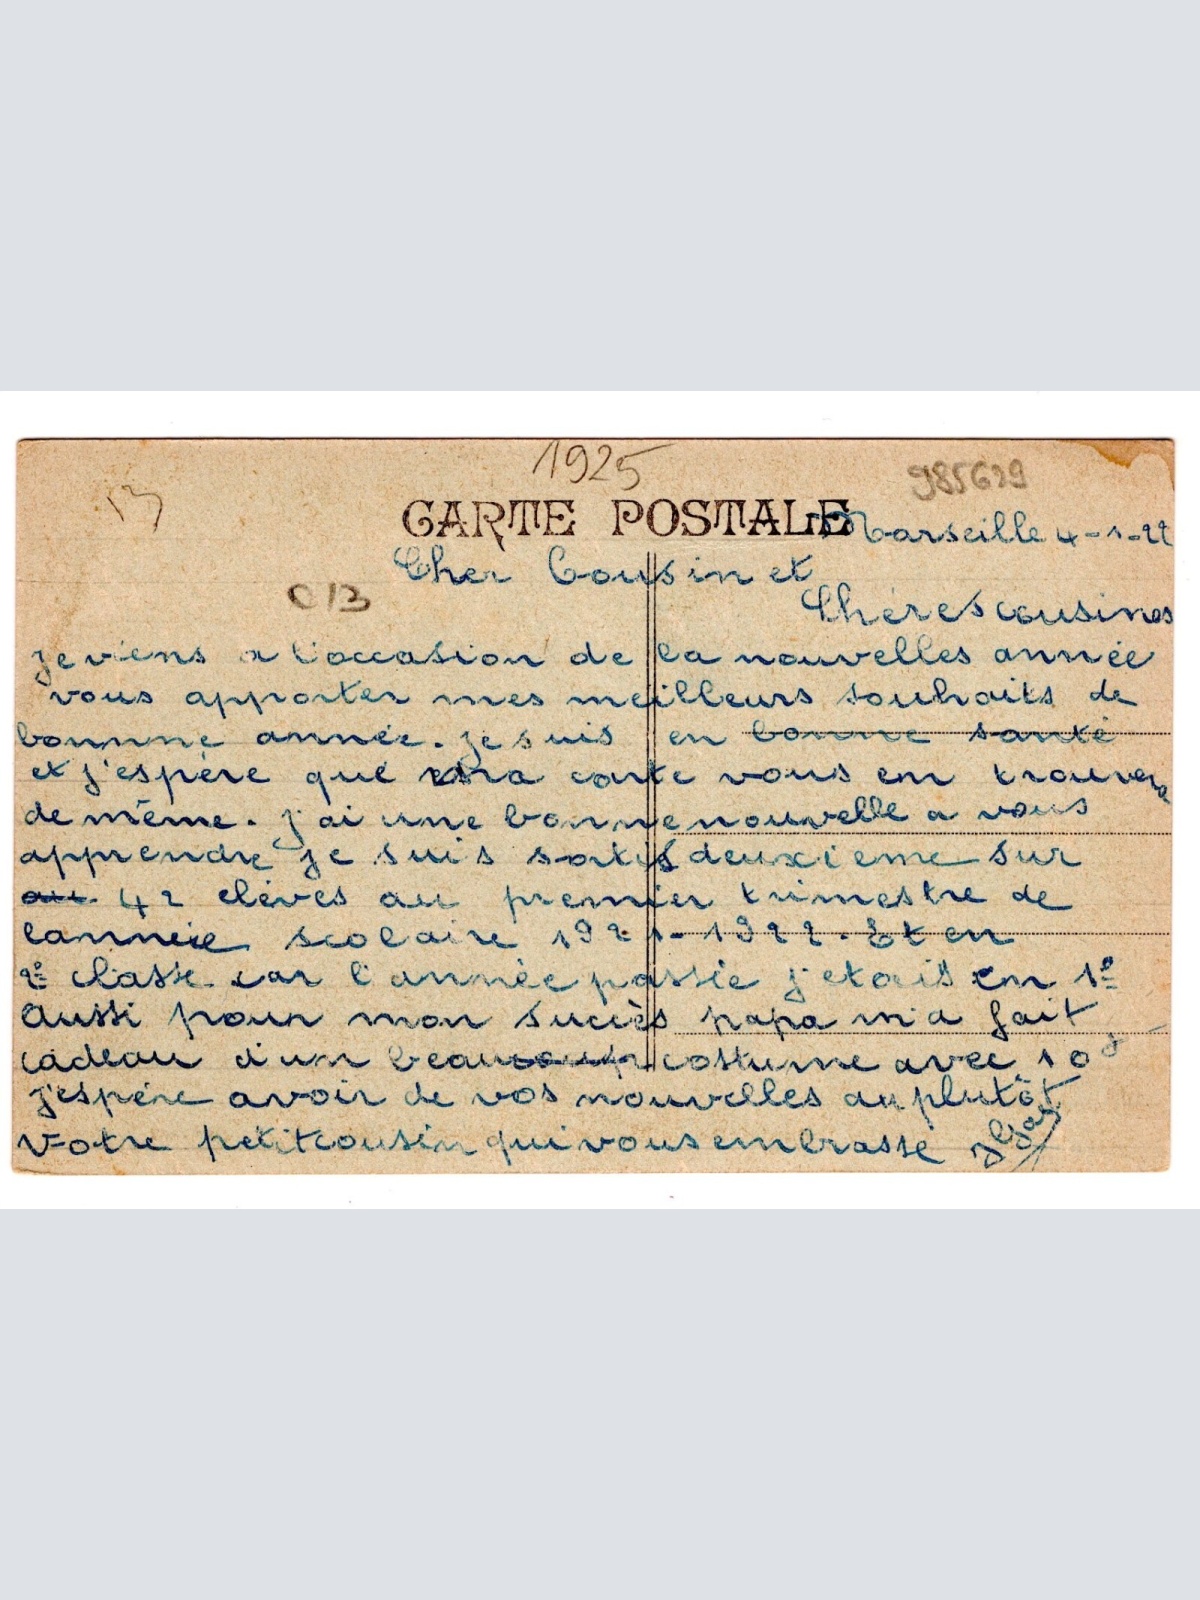 1925
985629
13
CARTE POSTALE
Marseille 4-1-22
Cher Cousin et
C13
Chéres cousines
je viens a l'occasion de la nouvelles année
vous apporter mes meilleurs souhaits de
bonnne année. je suis en bonne santé
et j'espère que ma carte vous em trouvera
de même. j'ai une bonne nouvelle a vous
apprendre je suis sortis deuxieme sur
au 42 elèves au premier trimestre de
lannéie scolaire 1921-1922. Et en
2º classe car l'année passée j'etais em 1º
Aussi pour mon succès papa m'a fait
cadeau d'un beau costume avec 10
j'espére avoir de vos nouvelles au plutôt
Votre petit cousin qui vous embrasse